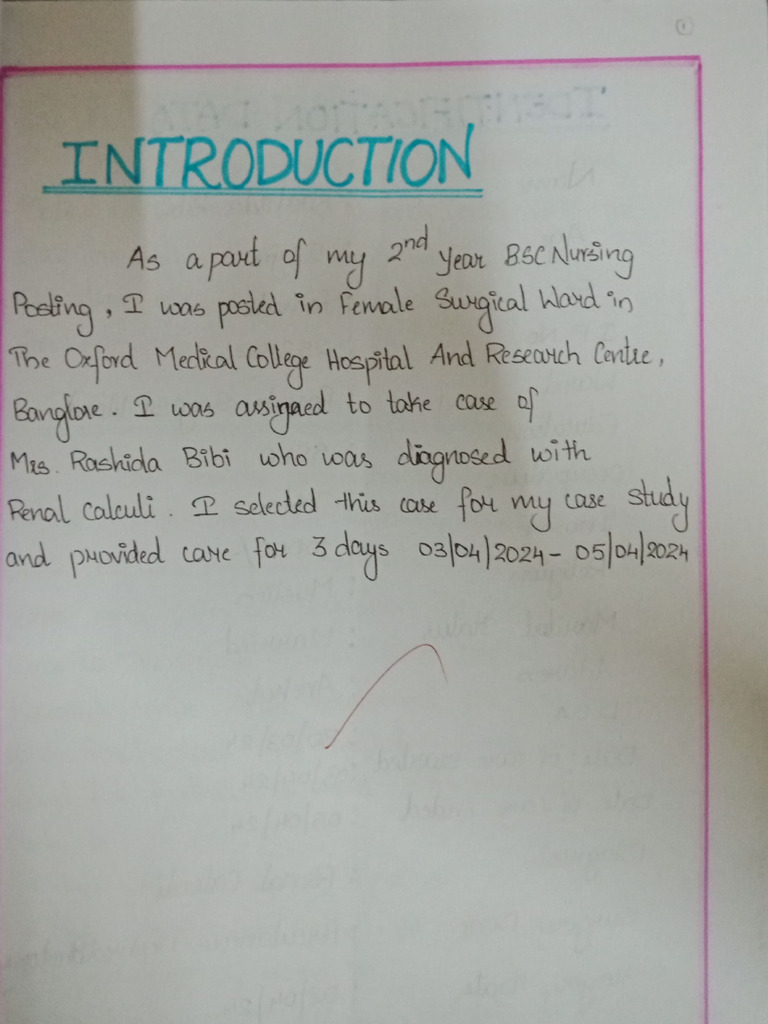 1
INTRODUCTION
As a part of my 2nd Year BSC Nursing
Posting, I was posted in Female Surgical Ward in
The Oxford Medical College Hospital And Research Centre,
Banglore. I was assigned to take case of
Mrs. Rashida Bibi who was diagnosed with
Renal calculi. I selected this case for my case study
and provided care for 3 days 03/04/2024 - 05/04/2024